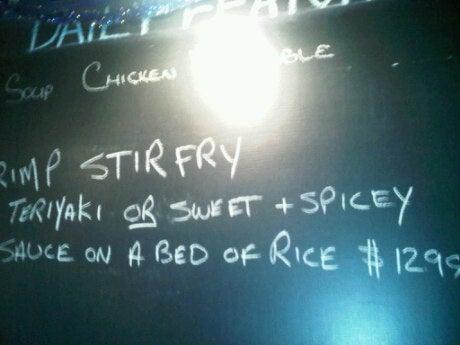 DAILY FEATUR
SOUP CHICKEN BLE
RIMP STIR FRY
TERIYAKI OR SWEET + SPICEY
SAUCE ON A BED OF RICE $ 1299